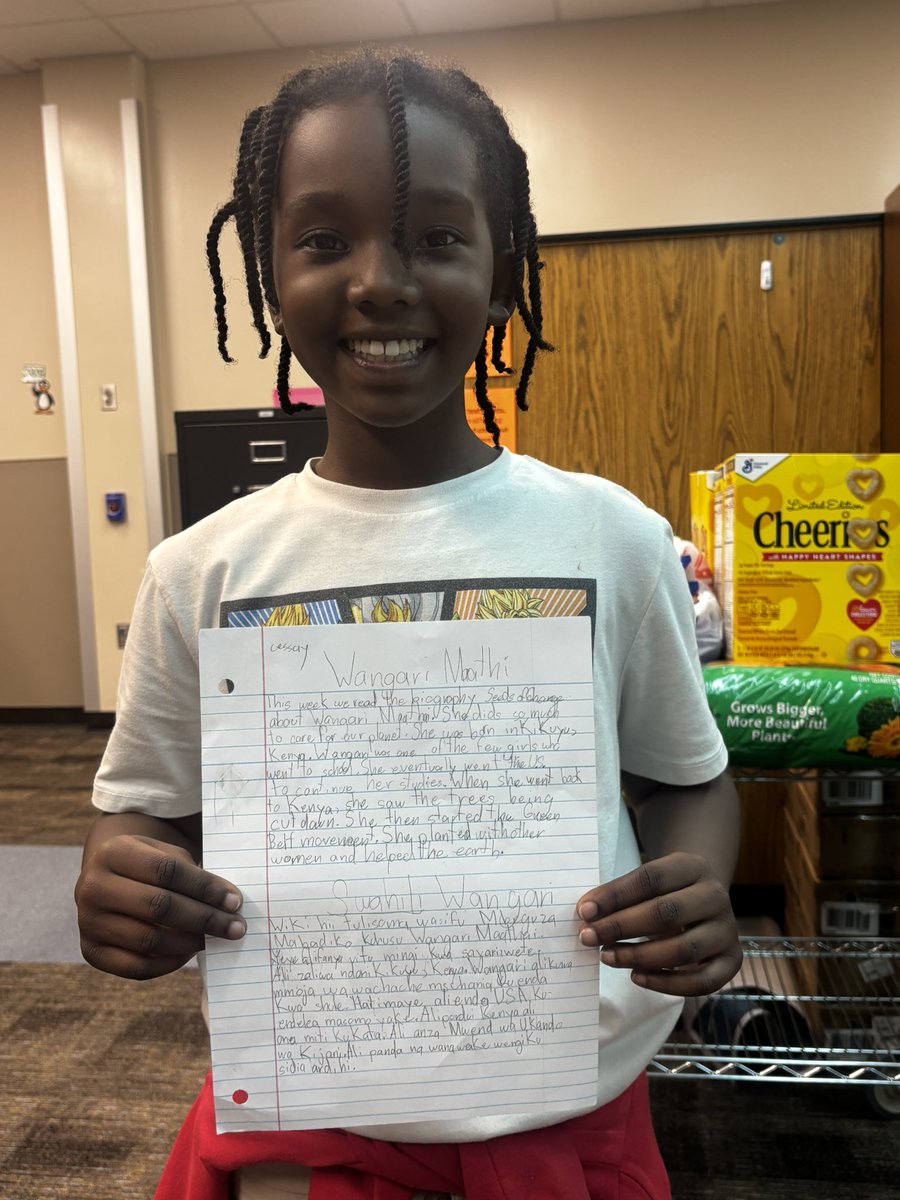 essay
Wangari Maathi
This week we read the biography Seeds of change
about Wangari Maathai. She dids so much
to care for our planet. She was born in Kikuyu,
Kenya. Wangari was one of the few girls who
went to school. She eventually went the US
to continue her studies. When she went back
to Kenya, she saw the trees being
cut down. She then started the Green
Belt movement. She planted with other
women and helped the earth.
Swahili Wangari
Wiki hii tulisoma wasifu Mbegu za
Mabadiko Kuhusu Wangari Maathai.
Yeye alifanya vitu mingi kwa sayari wetu.
Ali zaliwa ndani Kikuyu, Kenya. Wangari alikuwa
mmoja wa wachache msichana ku enda
kwo shule. Hatimaye, aliendo USA, Ku
endelea masomo yake. Ali Kenya ali
ona miti Ku Kata. Ali anza Mwend wa Ukando
wa Kijani. Ali panda na wanawake wengi Ku
sidia ard, hi.
Limited Edition
Cheerios
with HAPPY HEART SHAPES
Grows Bigger,
More Beautiful
Plants